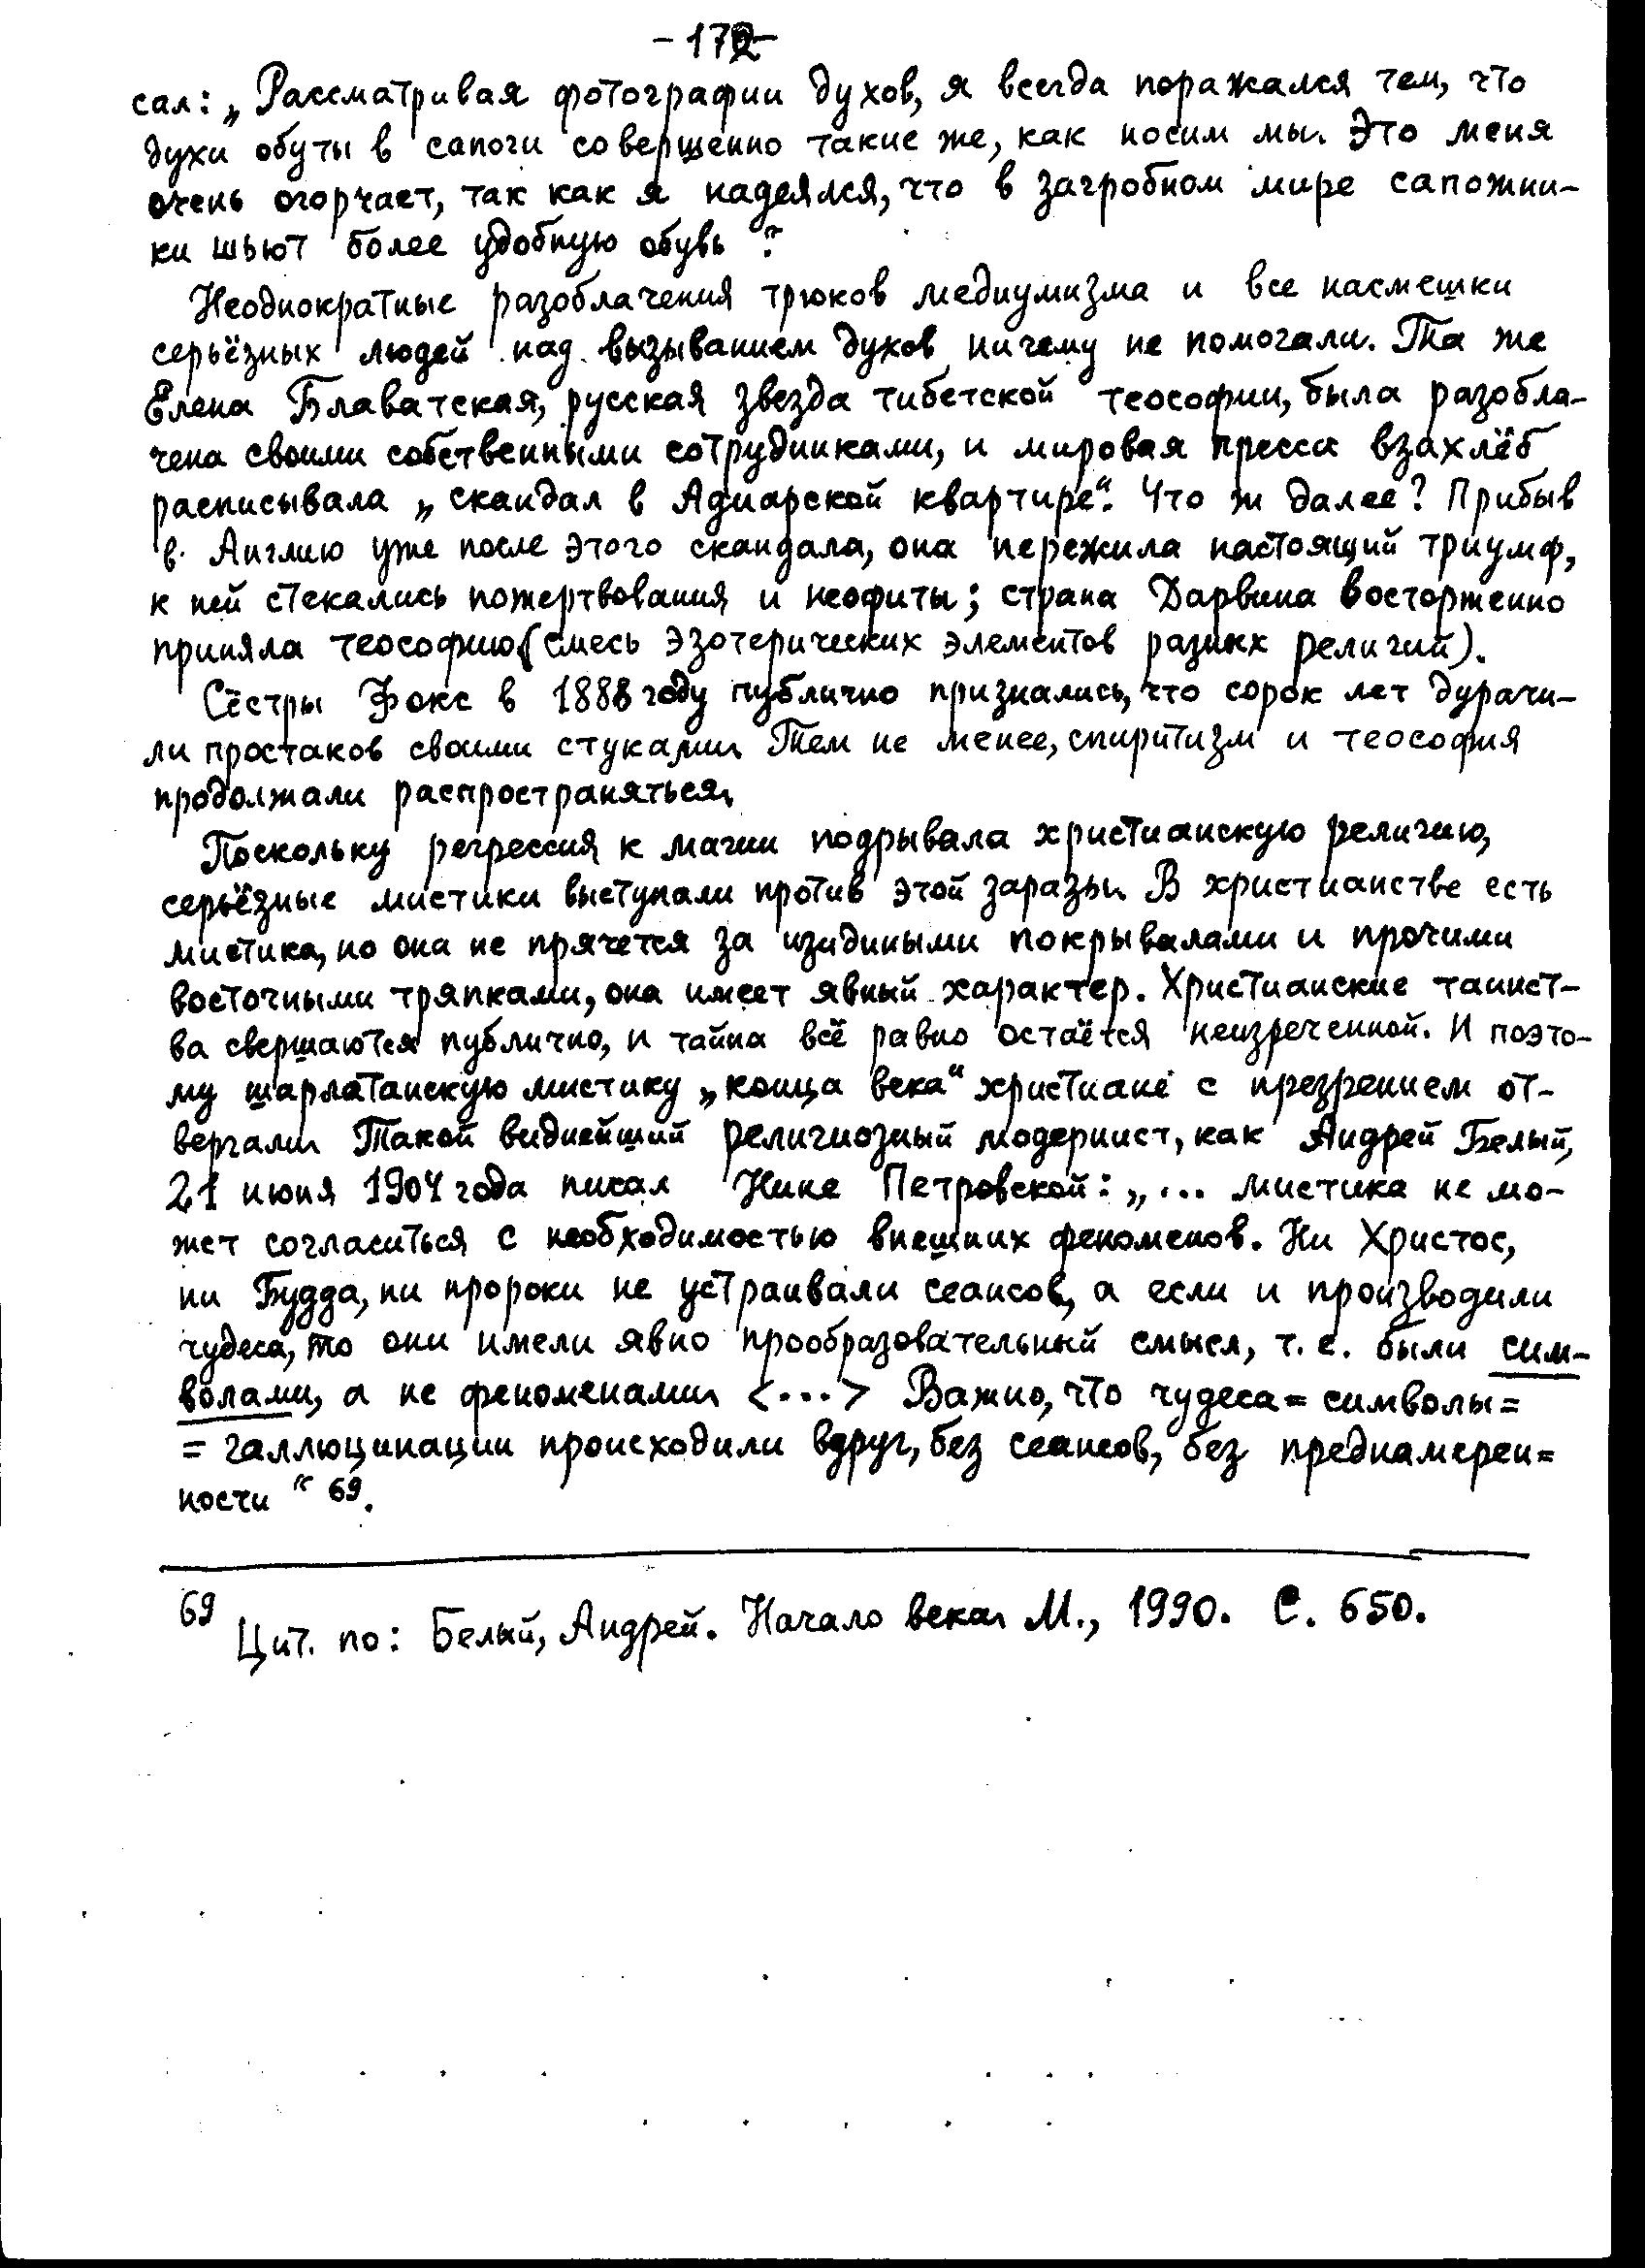 - 172 -
сал: „Рассматривая фотографии духов, я всегда поражался тем, что
духи обуты в сапоги совершенно такие же, как носим мы. Это меня
очень огорчает, так как я надеялся, что в загробном мире сапожни-
ки шьют более удобную обувь".
Неоднократные разоблачения трюков медиумизма и все насмешки
серьёзных людей над вызыванием духов ничему не помогали. Та же
Елена Блаватская, русская звезда тибетской теософии, была разобла-
чена своими собственными сотрудниками, и мировая пресса взахлёб
расписывала „скандал в Адиарской квартире". Что ж далее? Прибыв
в Англию уже после этого скандала, она пережила настоящий триумф,
к ней стекались пожертвования и неофиты; страна Дарвина восторженно
приняла теософию (смесь эзотерических элементов разных религий).
Сёстры Фокс в 1888 году публично признались, что сорок лет дурачи-
ли простаков своими стуками. Тем не менее, спиритизм и теософия
продолжали распространяться.
Поскольку регрессия к магии подрывала христианскую религию,
серьёзные мистики выступали против этой заразы. В христианстве есть
мистика, но она не прячется за изидиными покрывалами и прочими
восточными тряпками, она имеет явный характер. Христианские таинст-
ва свершаются публично, и тайна всё равно остаётся неизреченной. И поэто-
му шарлатанскую мистику „конца века" христиане с презрением от-
вергали. Такой виднейший религиозный модернист, как Андрей Белый,
21 июня 1904 года писал Нине Петровской: „... мистика не мо-
жет согласиться с необходимостью внешних феноменов. Ни Христос,
ни Будда, ни пророки не устраивали сеансов, а если и производили
чудеса, то они имели явно прообразовательный смысл, т. е. были сим-
волами, а не феноменами. <...> Важно, что чудеса = символы =
= галлюцинации происходили вдруг, без сеансов, без преднамерен=
ности" 69.
69 Цит. по: Белый, Андрей. Начало века. М., 1990. С. 650.